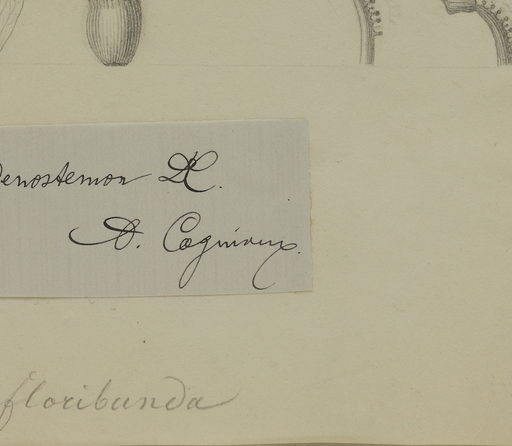 denostemon DC.
A. Cogniaux.
floribunda